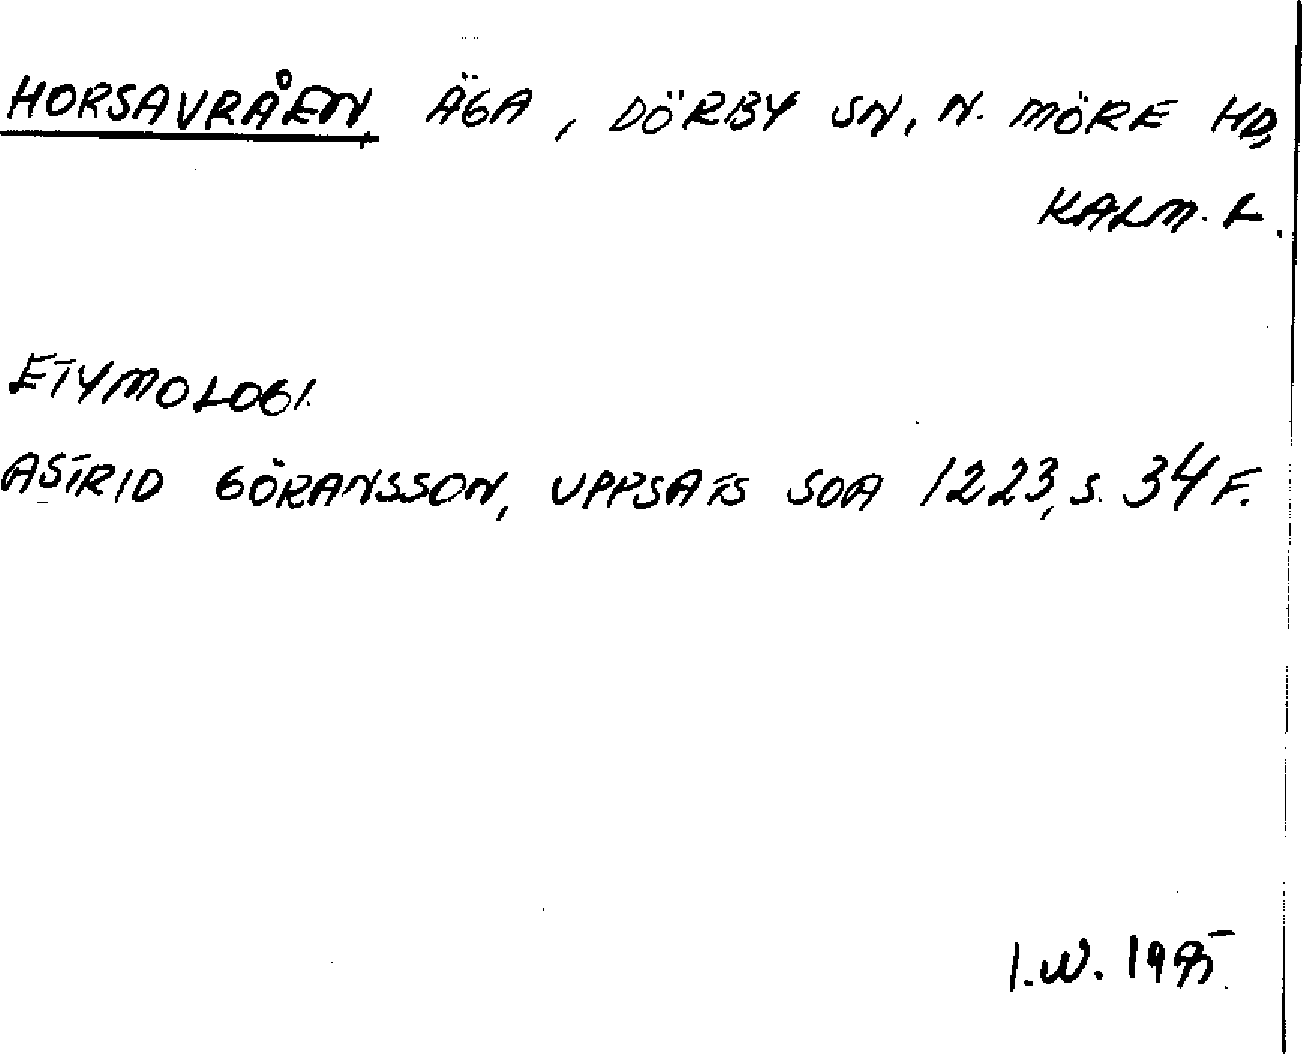 HORSAVRÅEN, ÄGA, DÖRBY SN, N. MÖRE HD,
KALM. L.
ETYMOLOGI.
ASTRID GÖRANSSON, UPPSATS SOA 1223, S. 34 F.
I.W. 1995